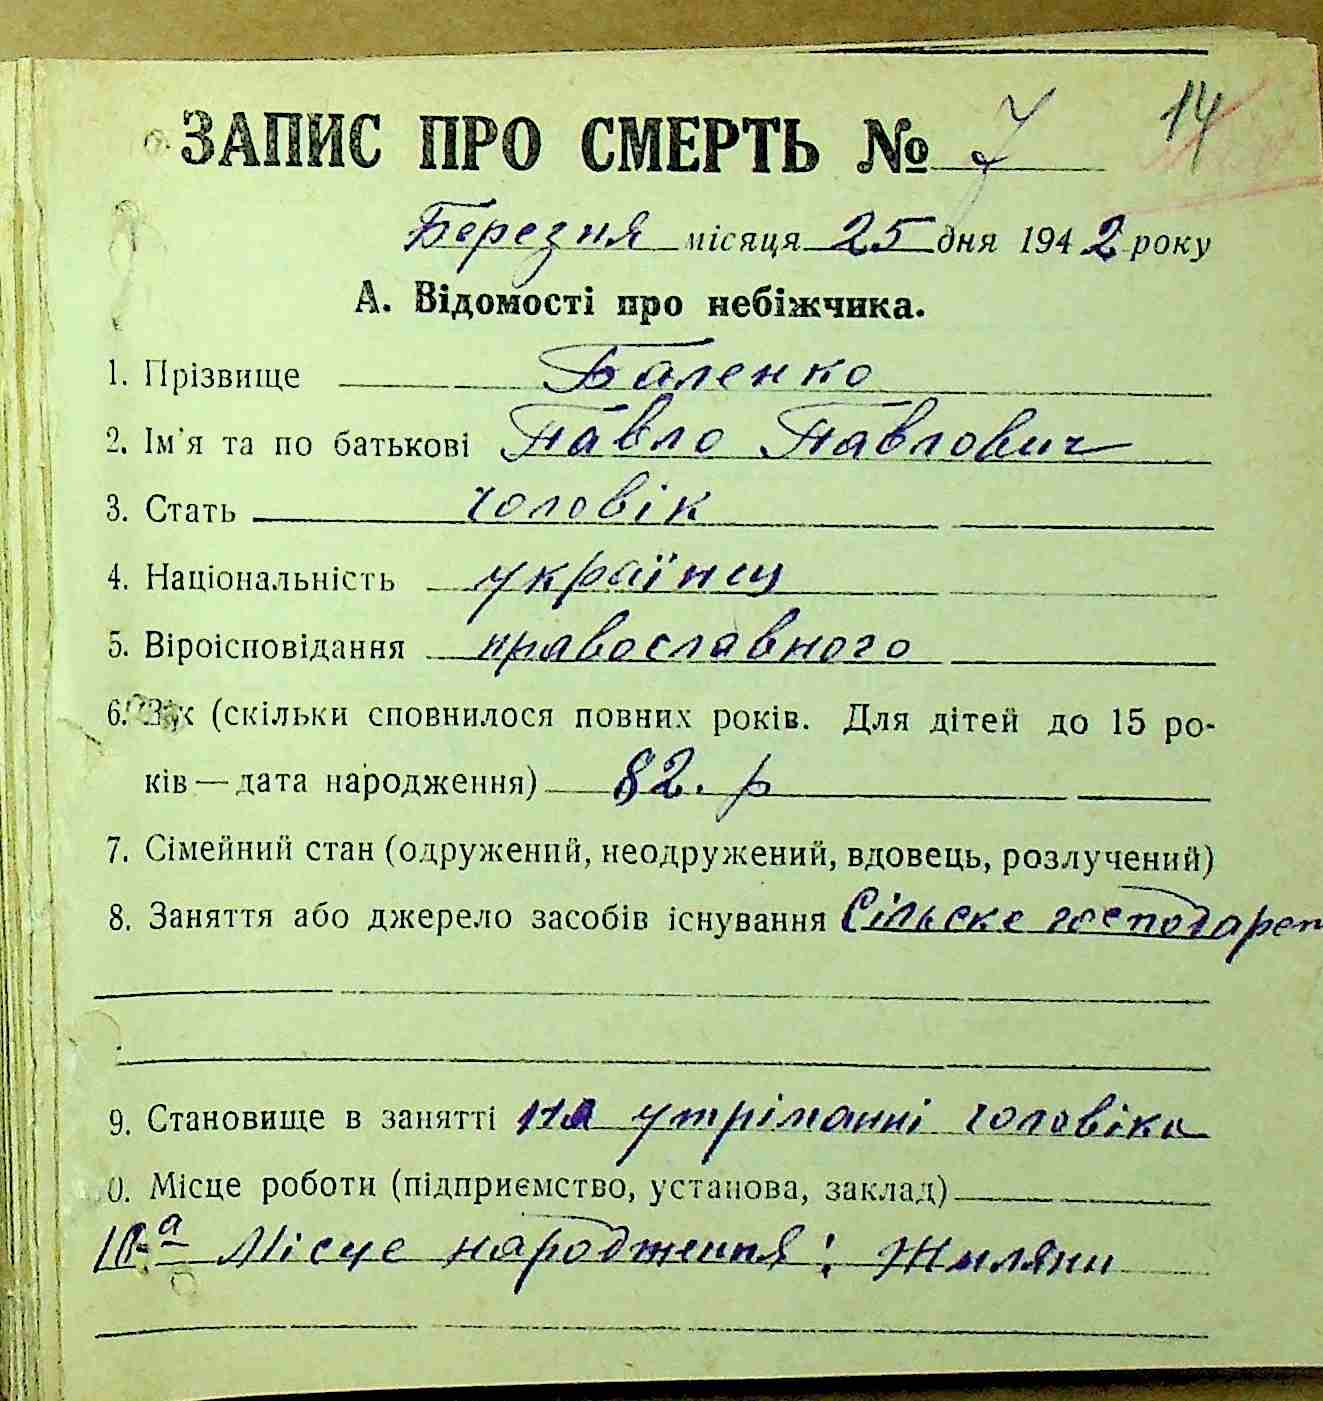 14
ЗАПИС ПРО СМЕРТЬ № 7
Березня місяця 25 дня 1942 року
А. Відомості про небіжчика.
1. Прізвище Баленко
2. Ім'я та по батькові Павло Павлович
3. Стать чоловік
4. Національність українец
5. Віроісповідання православного
6. Вік (скільки сповнилося повних років. Для дітей до 15 ро-
ків — дата народження) 82. р
7. Сімейний стан (одружений, неодружений, вдовець, розлучений)
8. Заняття або джерело засобів існування Сільске господарст
9. Становище в занятті на утріманні чоловіка
0. Місце роботи (підприємство, установа, заклад)
10-а Місце народження: Жиляни